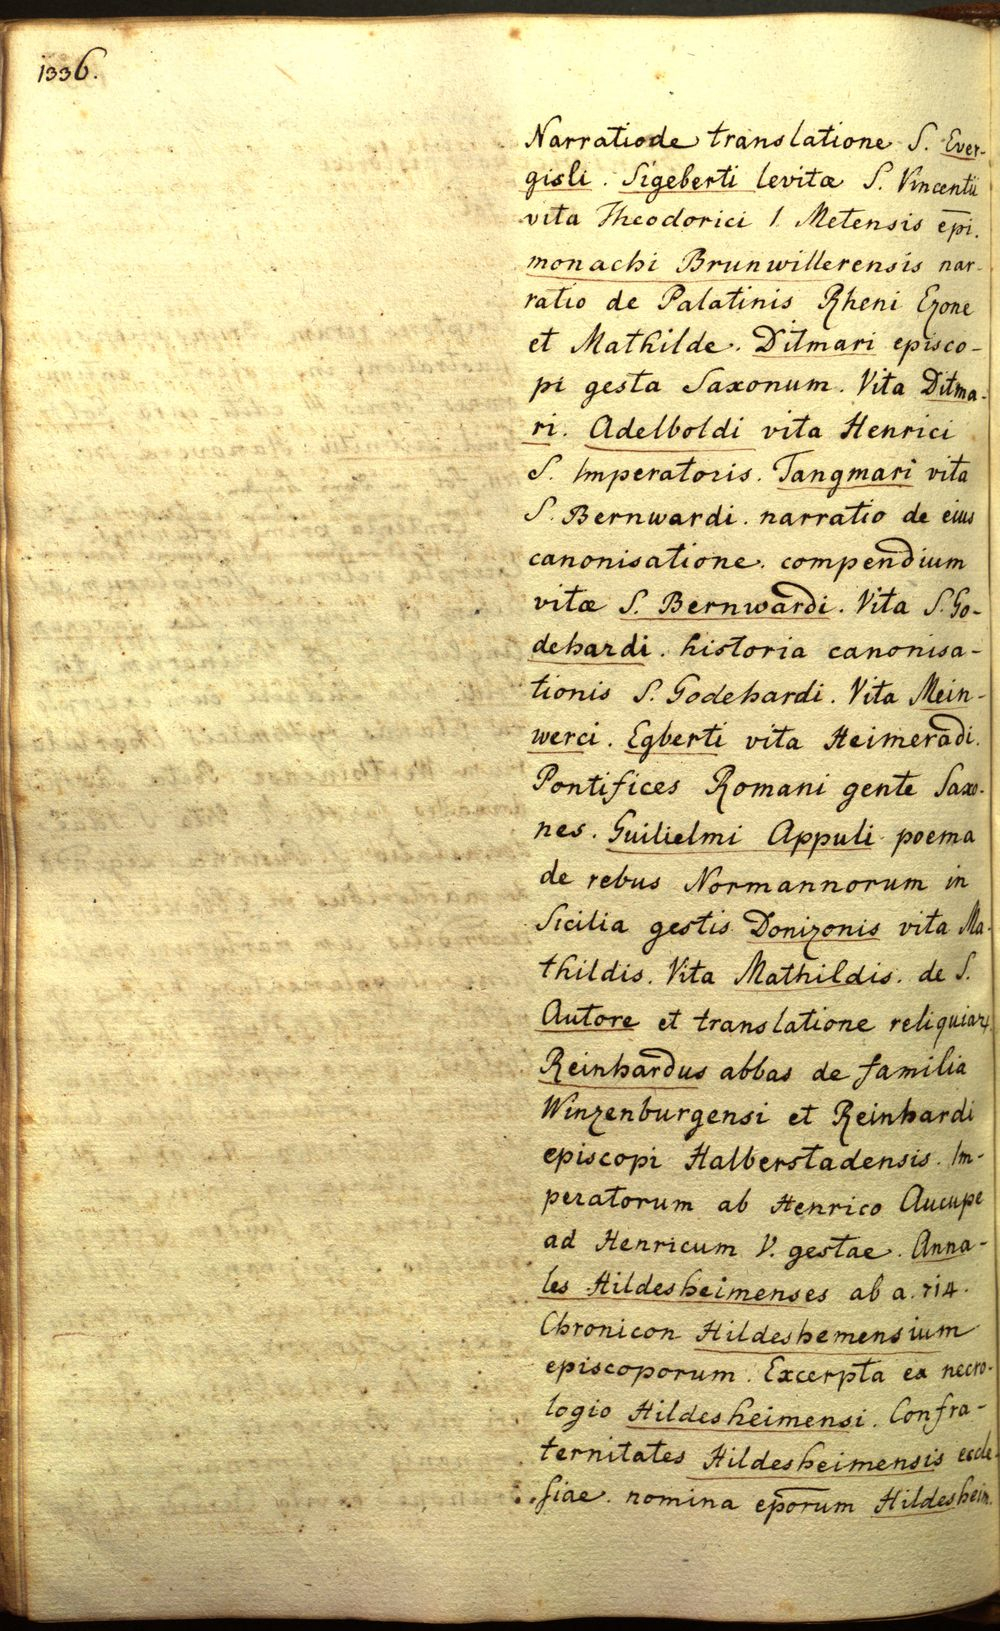 1336.
Narratio de translatione S. Ever-
gisli. Sigeberti levitæ S. Vincentii
vita Theodorici I Metensis ep̅i.
monachi Brunwillerensis nar-
ratio de Palatinis Rheni Ezone
et Mathilde. Ditmari episco-
pi gesta Saxonum. Vita Ditma-
ri. Adelboldi vita Henrici
S. Imperatoris. Tangmari vita
S. Bernwardi. narratio de eius
canonisatione. compendium
vitæ S. Bernwardi. Vita S. Go-
dehardi. historia canonisa-
tionis S. Godehardi. Vita Mein-
werci. Egberti vita Heimeradi.
Pontifices Romani gente Saxo-
nes. Guilielmi Appuli poema
de rebus Normannorum in
Sicilia gestis Donizonis vita Ma-
thildis. Vita Mathildis. de S.
Autore et translatione reliquiarꝝ
Reinhardus abbas de familia
Winzenburgensi et Reinhardi
episcopi Halberstadensis. Im-
peratorum ab Henrico Aucupe
ad Henricum V. gestae. Anna-
les Hildesheimenses ab a. 714.
Chronicon Hildeshemensium
episcoporum. Excerpta ex necro-
logio Hildesheimensi. Confra-
ternitates Hildesheimensis eccle-
siae. nomina ep̅orum Hildesheim.